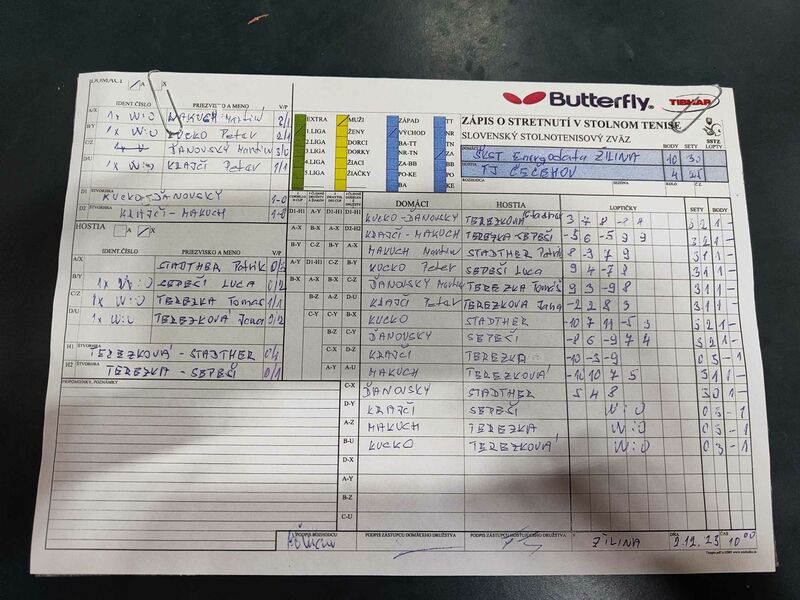 DOMÁCI A X
Butterfly TIBHAR
IDENT.ČÍSLO PRIEZVISKO A MENO V/P
A/X 1x W:O MAKUCH Martin 2/1
B/Y 1x W:O KUCKO Peter 2/1
C/Z ĎANOVSKÝ Martin 3/0
D/U 1x W:O KRAJČÍ Peter 1/1
EXTRA MUŽI ZÁPAD TT
1.LIGA ŽENY VÝCHOD NR
2.LIGA DORCI BA-TT TN
3.LIGA DORKY NR-TN ZA
4.LIGA ŽIACI ZA-BB BB
5.LIGA ŽIAČKY PO-KE PO
BA KE
ZÁPIS O STRETNUTÍ V STOLNOM TENISE
SLOVENSKÝ STOLNOTENISOVÝ ZVÄZ
SSTZ
BODY SETY LOPTY
DOMÁCI ŠKST Energodata ŽILINA 10 30
HOSTIA TJ ČEČEHOV 4
ROZHODCA SEZÓNA KOLO Č.Z.
D1 ŠTVORHRA KUCKO-ĎANOVSKÝ 1-0
D2 KRAJČÍ-MAKUCH 1-0
HOSTIA A X
IDENT.ČÍSLO PRIEZVISKO A MENO V/P
A/X STADTHER Patrik 0/3
B/Y 1x W:O SEPEŠI LUCA 0/2
C/Z 1x W:O TEREZKA Tomáš 1/1
D/U 1x W:O TEREZKOVÁ Jana 0/2
H1 ŠTVORHRA TEREZKOVÁ - STADTHER 0/1
H2 TEREZKA - SEPEŠI 0/1
PRIPOMIENKY, POZNÁMKY
DOMÁCI HOSTIA LOPTIČKY SETY BODY
D1-H1 A-Y D1-H1 D1-H1 KUCKO-ĎANOVSKÝ TEREZKOVÁ Stadther 3 7 8 -8 4 3 1 1 -
A-X B-X A-X D2-H2 KRAJČÍ-MAKUCH TEREZKA-SEPEŠI -5 6 -5 9 9 3 2 1 -
B-Y C-Z B-Y A-X MAKUCH Martin STADTHER Patrik 8 -9 7 9 3 1 1 -
A-Y D1-H1 C-Z B-Y KUCKO Peter SEPEŠI Luca 9 4 -7 8 3 1 1 -
B-X A-X B-X C-Z ĎANOVSKÝ Martin TEREZKA Tomáš 9 3 -9 8 3 1 1 -
B-Z A-Z D-U KRAJČÍ Peter TEREZKOVÁ Jana -2 2 8 3 3 1 1 -
C-Y B-Y KUCKO STADTHER -10 7 11 -5 3 3 2 1 -
B-Z C-Y ĎANOVSKÝ SEPEŠI -8 6 -9 7 4 3 2 1 -
C-X D-Z KRAJČÍ TEREZKA -10 -3 -9 0 3 - 1
A-Y A-U MAKUCH TEREZKOVÁ -10 10 7 5 3 1 1 -
C-X ĎANOVSKÝ STADTHER 5 4 8 3 0 1 -
D-Y KRAJČÍ SEPEŠI W:O 0 3 - 1
A-Z MAKUCH TEREZKA W:O 0 3 - 1
B-U KUCKO TEREZKOVÁ W:O 0 3 - 1
D-X
A-Y
B-Z
C-U
PODPIS ROZHODCU PODPIS ZÁSTUPCU DOMÁCEHO DRUŽSTVA PODPIS ZÁSTUPCU HOSŤUJÚCEHO DRUŽSTVA V ŽILINA DŇA 2.12.23 ČAS 10 00